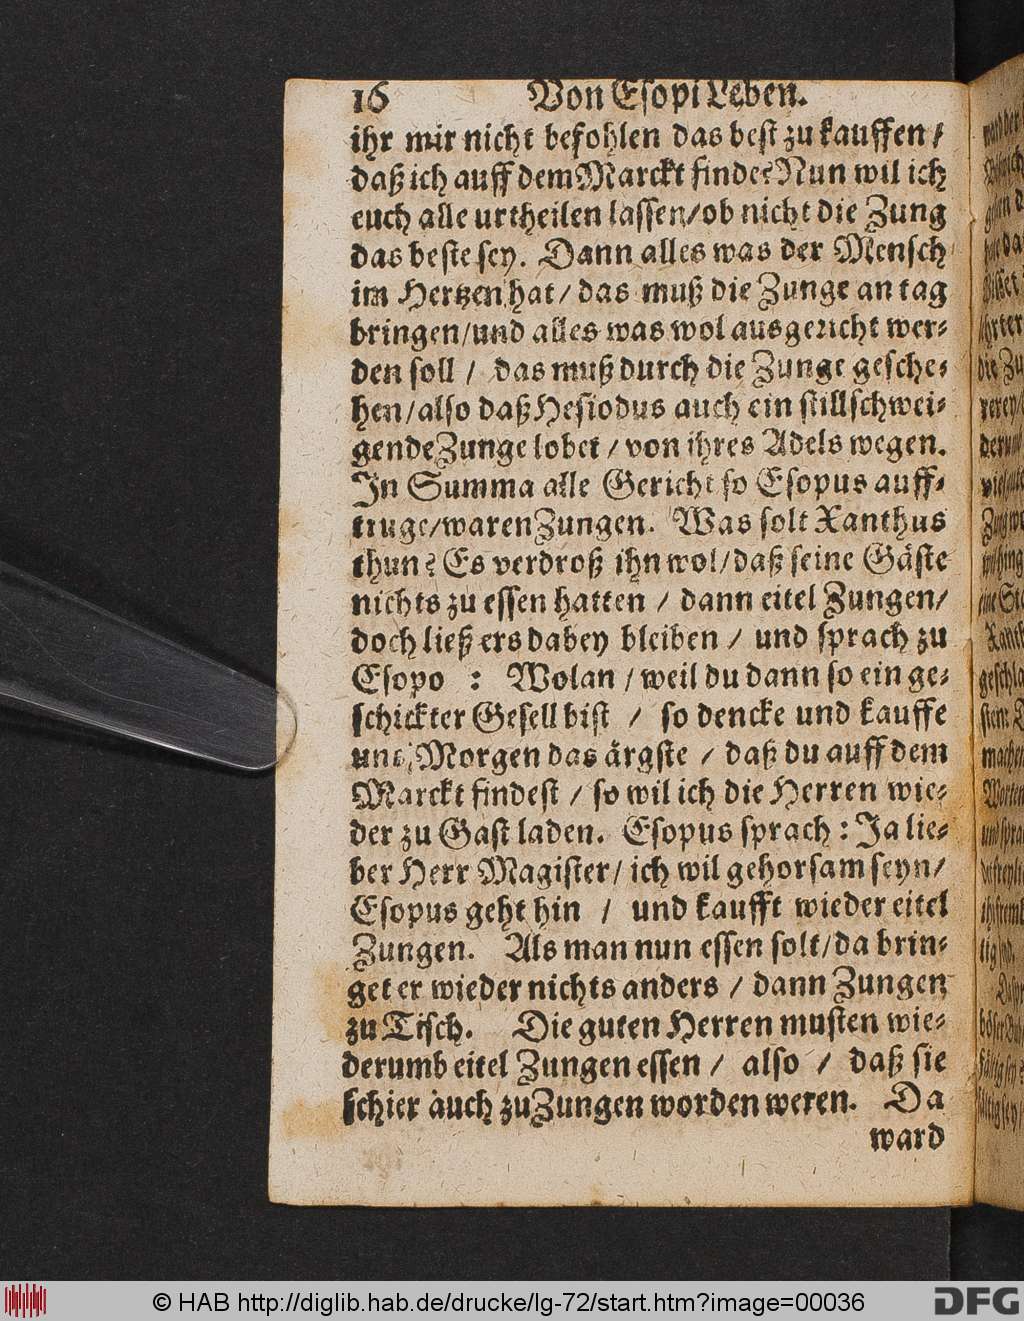 16 Von Esopi Leben.
ihr mir nicht befohlen das best zu kauffen/
daß ich auff dem Marckt finde? Nun wil ich
euch alle urtheilen lassen/ob nicht die Zung
das beste sey. Dann alles was der Mensch
im Hertzen hat/ das muß die Zunge an tag
bringen/und alles was wol ausgericht wer-
den soll / das muß durch die Zunge gesche-
hen/also daß Hesiodus auch ein stillschwei-
gende Zunge lobet / von ihres Adels wegen.
In Summa alle Gericht so Esopus auff-
truge/waren Zungen. Was solt Xanthus
thun? Es verdroß ihn wol/daß seine Gäste
nichts zu essen hatten / dann eitel Zungen/
doch ließ ers dabey bleiben / und sprach zu
Esopo : Wolan / weil du dann so ein ge-
schickter Gesell bist / so dencke und kauffe
uns Morgen das ärgste / daß du auff dem
Marckt findest / so wil ich die Herren wie-
der zu Gast laden. Esopus sprach : Ja lie-
ber Herr Magister/ ich wil gehorsam seyn/
Esopus geht hin / und kaufft wieder eitel
Zungen. Als man nun essen solt/da brin-
get er wieder nichts anders / dann Zungen
zu Tisch. Die guten Herren musten wie-
derumb eitel Zungen essen / also / daß sie
schier auch zu Zungen worden weren. Da
ward
© HAB http://diglib.hab.de/drucke/lg-72/start.htm?image=00036
DFG